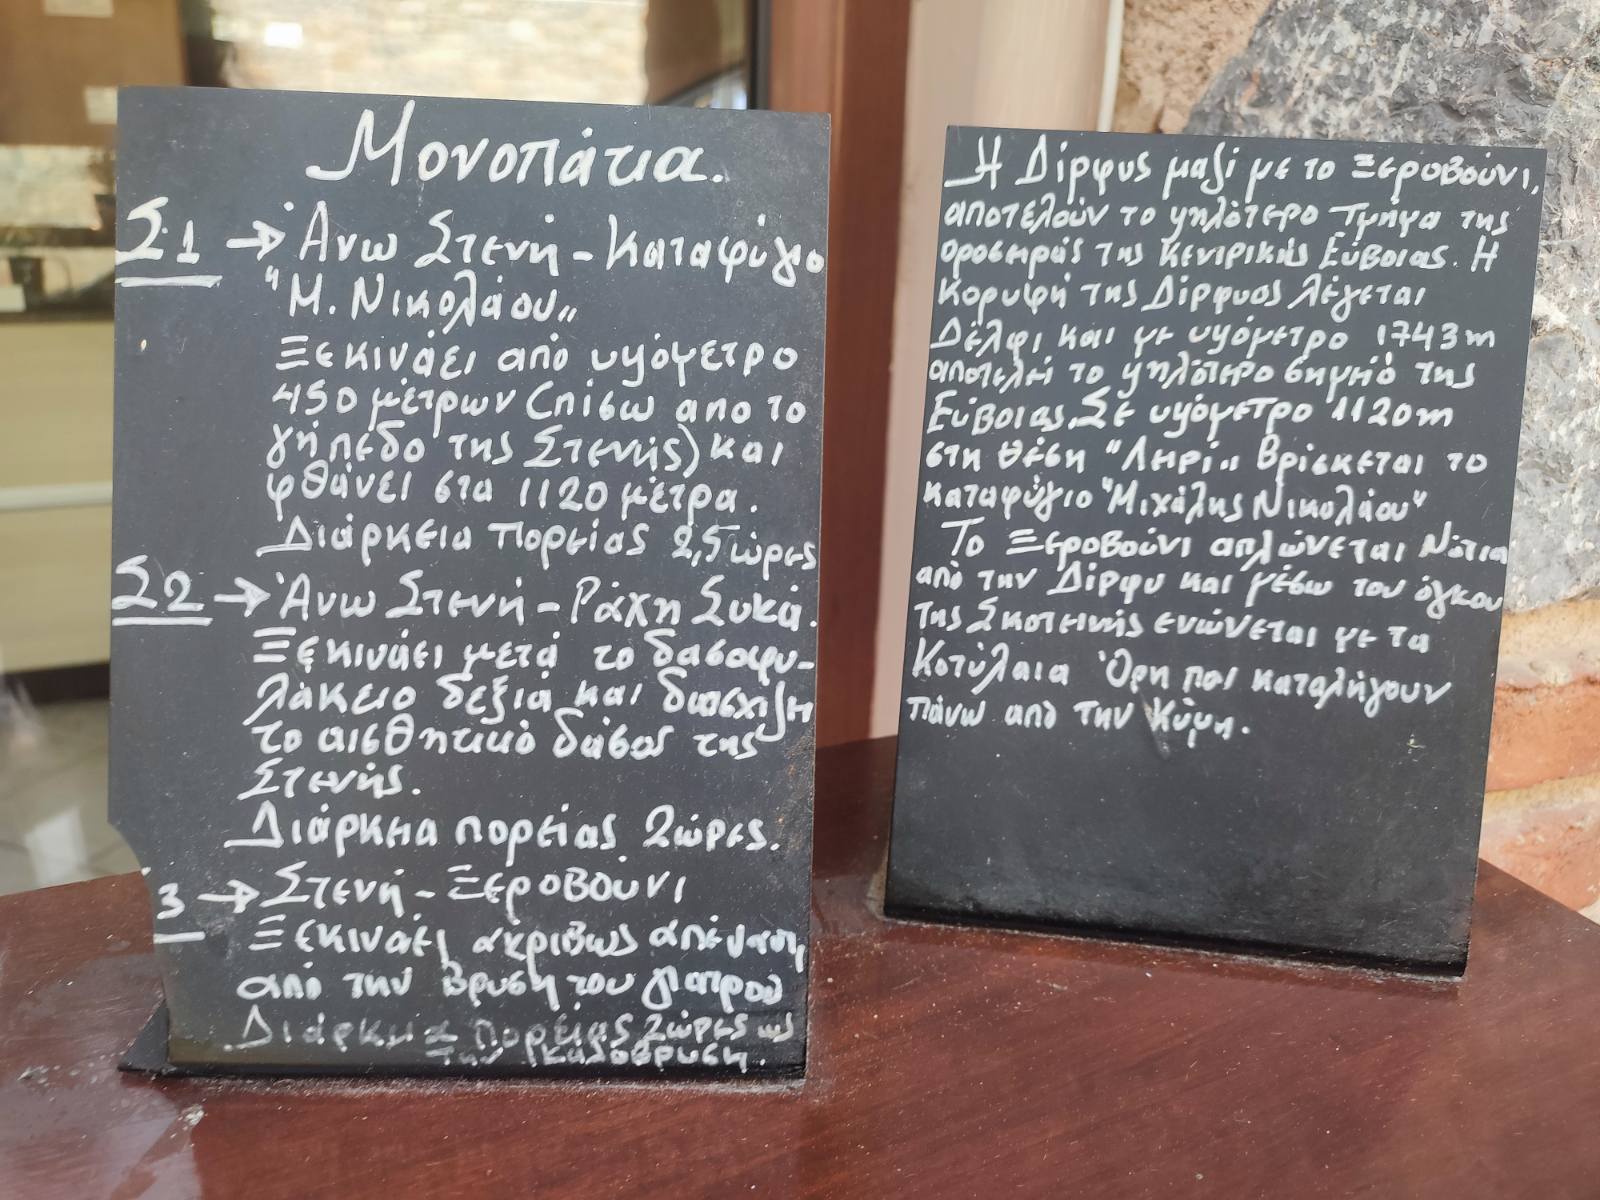 Μονοπάτια.
Σ1 → Άνω Στενή - Καταφύγιο
"Μ. Νικολάου"
Ξεκινάει από υψόμετρο
450 μέτρων (πίσω απο το
γήπεδο της Στενής) και
φθάνει στα 1120 μέτρα.
Διάρκεια πορείας 2,5 ώρες
Σ2 → Άνω Στενή - Ράχη Συκά.
Ξεκινάει μετά το δασαρφυ-
λάκειο δεξιά και διασχίζει
το αισθητικό δάσος της
Στενής.
Διάρκεια πορείας 2ώρες.
3 → Στενή - Ξεροβούνι
Ξεκινάει ακριβώς απέναντι
από την Βρύση του γιατρού
Διάρκεια πορείας 2ώρες ως
την
Η Δίρφυς μαζί με το Ξεροβούνι,
αποτελούν το ψηλότερο τμήμα της
οροσειράς της Κεντρικής Εύβοιας. Η
κορυφή της Δίρφυος λέγεται
Δέλφι και με υψόμετρο 1743m
αποτελεί το ψηλότερο σημείο της
Εύβοιας. Σε υψόμετρο 1120m
στη θέση "Λειρί" Βρίσκεται το
καταφύγιο "Μιχάλης Νικολάου"
Το Ξεροβούνι απλώνεται Νότια
από την Δίρφυ και μέσω του όγκου
της Σκοτεινής ενώνεται με τα
Κοτύλαια Όρη που καταλήγουν
πάνω από την Κύμη.